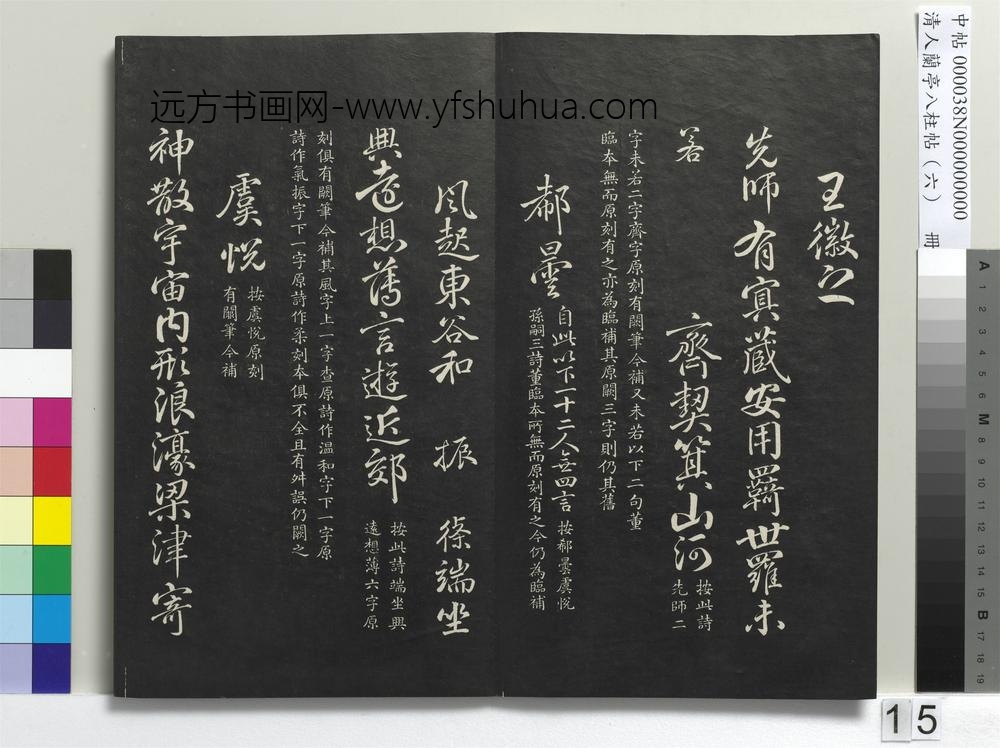 中帖 000038N000000000
清人蘭亭八柱帖（六） 冊
远方书画网-www.yfshuhua.com
王徽之
先師有冥藏安用羈世羅未
若 齊契箕山河 按此詩
先師二
字未若二字齊字原刻有闕筆今補又未若以下二句董
臨本無而原刻有之亦為臨補其原闕三字則仍其舊
郗曇 自此以下一十二人無四言 按郗曇虞悅
孫嗣三詩董臨本所無而原刻有之今仍為臨補
風起東谷和 振 條端坐
興遠想薄言遊近郊 按此詩端坐興
遠想薄六字原
刻俱有闕筆今補其風字上一字查原詩作溫和字下一字原
詩作氣振字下一字原詩作柔刻本俱不全且有舛誤仍闕之
虞悅 按虞悅原刻
有闕筆今補
神散宇宙內形浪濠梁津寄
A 1 2 3 4 5 6 M 8 9 10 11 12 13 14 15 B 17 18 19
15